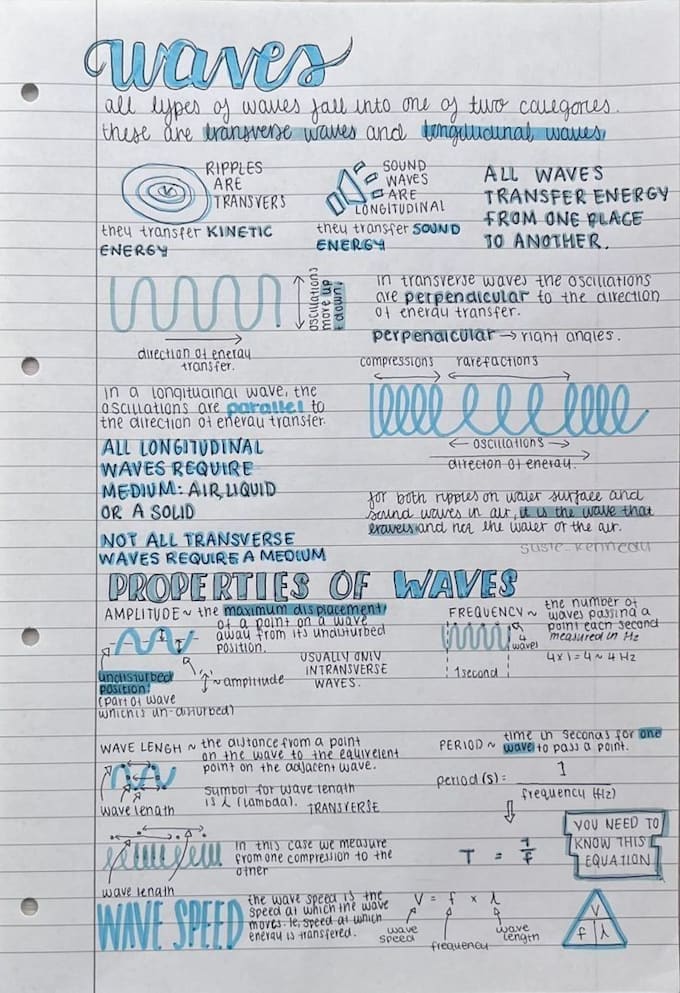 waves
all types of waves fall into one of two categories.
these are transverse waves and longitudinal waves.
RIPPLES
ARE
TRANSVERS
they transfer KINETIC
ENERGY
SOUND
WAVES
ARE
LONGITUDINAL
they transfer SOUND
ENERGY
ALL WAVES
TRANSFER ENERGY
FROM ONE PLACE
TO ANOTHER.
oscillations
move up
+ down
direction of energy
transfer.
in transverse waves the oscillations
are perpendicular to the direction
of energy transfer.
perpendicular → right angles.
compressions rarefactions
in a longitudinal wave, the
oscillations are parallel to
the direction of energy transfer.
← oscillations →
direction of energy.
ALL LONGITUDINAL
WAVES REQUIRE
MEDIUM: AIR, LIQUID
OR A SOLID
NOT ALL TRANSVERSE
WAVES REQUIRE A MEDIUM
for both ripples on water surface and
sound waves in air, it is the wave that
travels and not the water or the air.
susie-kennedy
PROPERTIES OF WAVES
AMPLITUDE ~ the maximum displacement
of a point on a wave
away from its undisturbed
position.
undisturbed
position.
(part of wave
which is un-disturbed)
~ amplitude
USUALLY ONLY
INTRANSVERSE
WAVES.
FREQUENCY ~ the number of
waves passing a
point each second
measured in Hz
4 x 1 = 4 ~ 4 Hz
4
waves
1 second
WAVE LENGH ~ the distance from a point
on the wave to the equivelent
point on the adjacent wave.
symbol for wave length
is λ (lambda). TRANSVERSE
wave length
in this case we measure
from one compression to the
other
wave length
PERIOD ~ time in seconds for one
wave to pass a point.
period (s) = 1
frequency (Hz)
T = 1/f
YOU NEED TO
KNOW THIS
EQUATION
WAVE SPEED
the wave speed is the
speed at which the wave
moves. Ie, speed at which
energy is transfered.
V = f x λ
wave
speed
frequency
wave
length
V
f λ